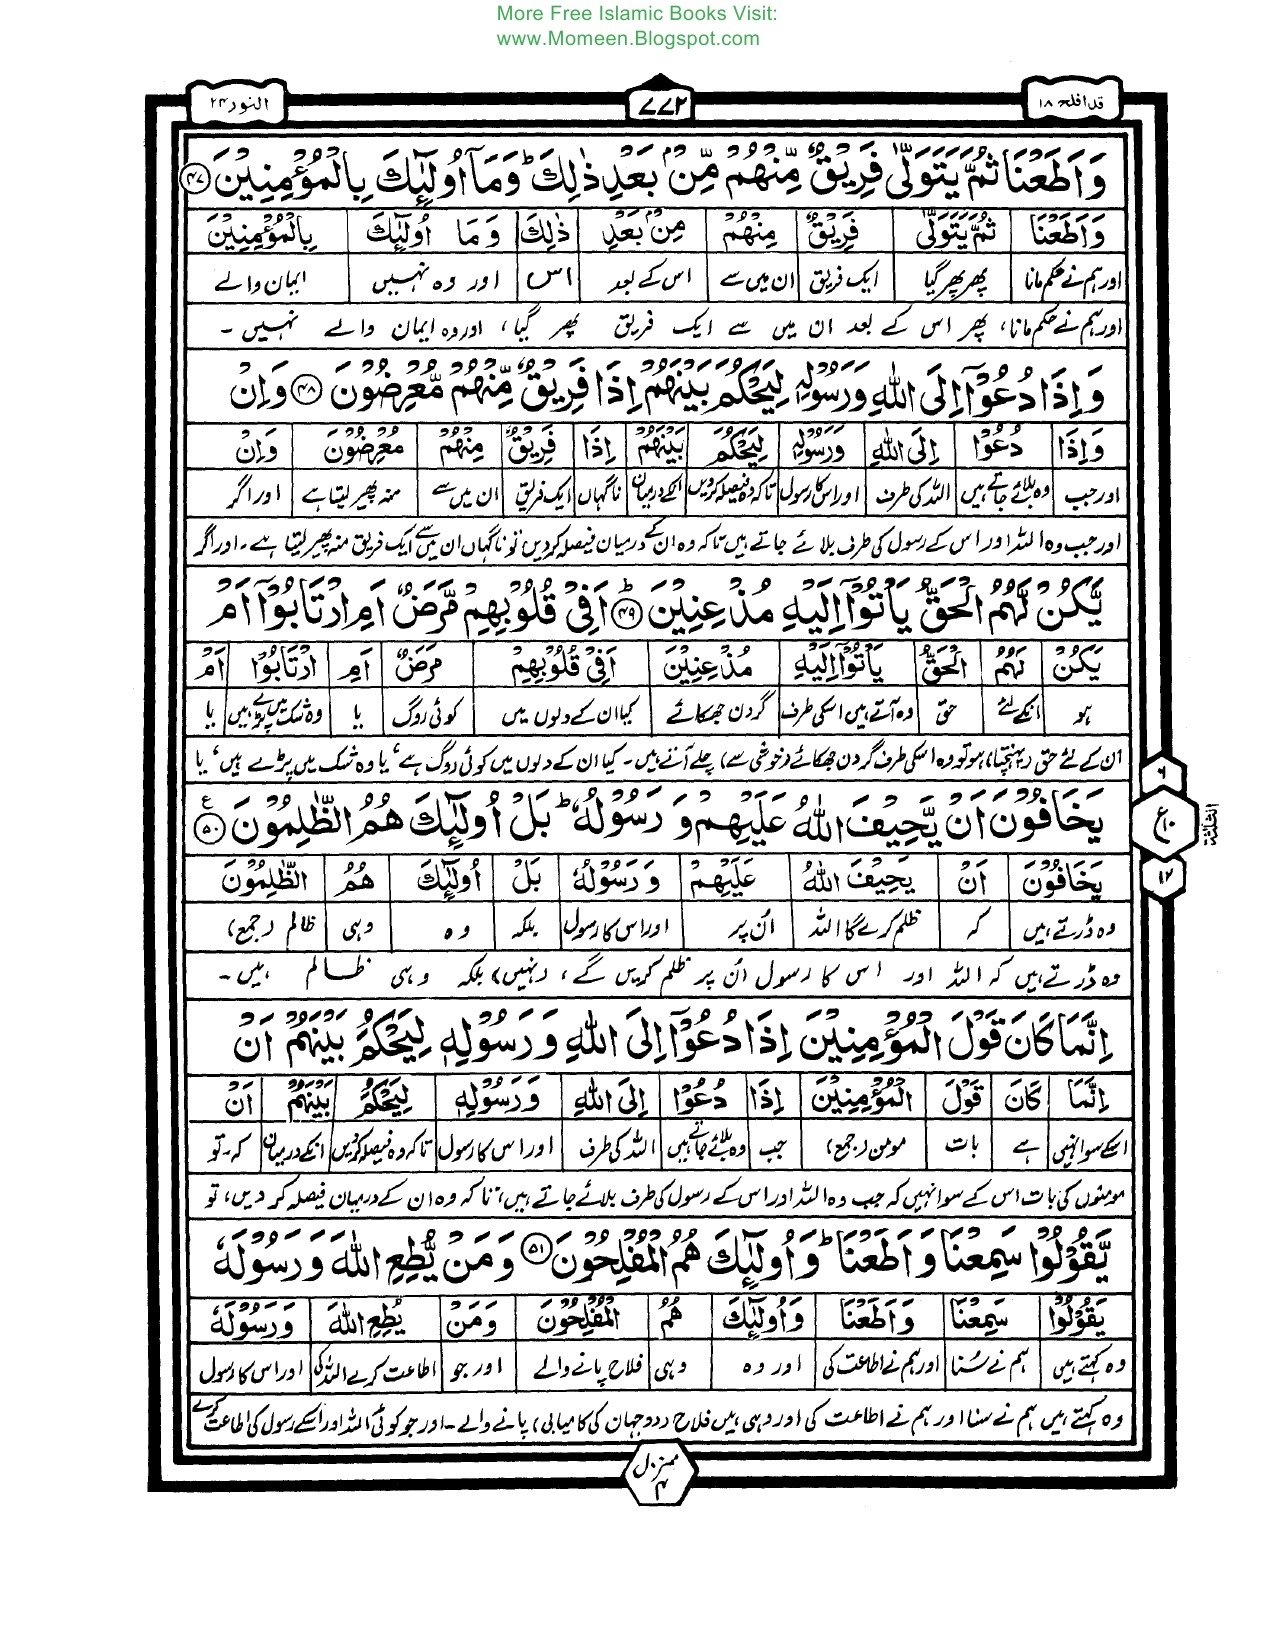 More Free Islamic Books Visit:
www.Momeen.Blogspot.com
قد افلح ۱۸
۷۷۲
النور ۲۴
وَاَطَعْنَا ثُمَّ يَتَوَلّٰى فَرِيْقٌ مِّنْهُمْ مِّنْۢ بَعْدِ ذٰلِكَ ؕ وَمَاۤ اُولٰٓئِكَ بِالْمُؤْمِنِيْنَ ﴿۴۷﴾
وَاَطَعْنَا ثُمَّ يَتَوَلّٰى فَرِيْقٌ مِنْهُمْ مِنْۢ بَعْدِ ذٰلِكَ وَمَا اُولٰٓئِكَ بِالْمُؤْمِنِيْنَ
اور ہم نے حکم مانا پھر پھر گیا ایک فریق ان میں سے اس کے بعد اس اور وہ نہیں ایمان والے
اور ہم نے حکم مانا، پھر اس کے بعد ان میں سے ایک فریق پھر گیا، اور وہ ایمان والے نہیں ۔
وَاِذَا دُعُوْۤا اِلَى اللّٰهِ وَرَسُوْلِهٖ لِيَحْكُمَ بَيْنَهُمْ اِذَا فَرِيْقٌ مِّنْهُمْ مُّعْرِضُوْنَ ﴿۴۸﴾ وَاِنْ
وَاِذَا دُعُوْۤا اِلَى اللّٰهِ وَرَسُوْلِهٖ لِيَحْكُمَ بَيْنَهُمْ اِذَا فَرِيْقٌ مِنْهُمْ مُعْرِضُوْنَ وَاِنْ
اور جب وہ بلائے جاتے ہیں اللہ کی طرف اور اس کا رسول تاکہ وہ فیصلہ کردیں انکے درمیان ناگہاں ایک فریق ان میں سے منہ پھیر لیتا ہے اور اگر
اور جب وہ اللہ اور اس کے رسول کی طرف بلائے جاتے ہیں تاکہ وہ ان کے درمیان فیصلہ کردیں تو ناگہاں ان میں سے ایک فریق منہ پھیر لیتا ہے ۔ اور اگر
يَّكُنْ لَّهُمُ الْحَقُّ يَاْتُوْۤا اِلَيْهِ مُذْعِنِيْنَ ﴿۴۹﴾ؕ اَفِيْ قُلُوْبِهِمْ مَّرَضٌ اَمِ ارْتَابُوْۤا اَمْ
يَكُنْ لَهُمُ الْحَقُّ يَاْتُوْۤا اِلَيْهِ مُذْعِنِيْنَ اَفِيْ قُلُوْبِهِمْ مَرَضٌ اَمِ ارْتَابُوْۤا اَمْ
ہو انکے لئے حق وہ آتے ہیں اسکی طرف گردن جھکائے کیا ان کے دلوں میں کوئی روگ یا وہ شک میں پڑے ہیں یا
ان کے لئے حق (پہنچتا) ہو تو وہ اسکی طرف گردن جھکائے (خوشی سے) چلے آتے ہیں ۔ کیا ان کے دلوں میں کوئی روگ ہے، یا وہ شک میں پڑے ہیں، یا
يَخَافُوْنَ اَنْ يَّحِيْفَ اللّٰهُ عَلَيْهِمْ وَرَسُوْلُهٗ ؕ بَلْ اُولٰٓئِكَ هُمُ الظّٰلِمُوْنَ ﴿۵۰﴾ ع
يَخَافُوْنَ اَنْ يَحِيْفَ اللّٰهُ عَلَيْهِمْ وَرَسُوْلُهٗ بَلْ اُولٰٓئِكَ هُمُ الظّٰلِمُوْنَ
وہ ڈرتے ہیں کہ ظلم کرے گا اللہ ان پر اور اس کا رسول بلکہ وہ وہی ظالم (جمع)
وہ ڈرتے ہیں کہ اللہ اور اس کا رسول ان پر ظلم کریں گے، (نہیں) بلکہ وہی ظالم ہیں ۔
اِنَّمَا كَانَ قَوْلَ الْمُؤْمِنِيْنَ اِذَا دُعُوْۤا اِلَى اللّٰهِ وَرَسُوْلِهٖ لِيَحْكُمَ بَيْنَهُمْ اَنْ
اِنَّمَا كَانَ قَوْلَ الْمُؤْمِنِيْنَ اِذَا دُعُوْۤا اِلَى اللّٰهِ وَرَسُوْلِهٖ لِيَحْكُمَ بَيْنَهُمْ اَنْ
اسکے سوا نہیں ہے بات مومن (جمع) جب وہ بلائے جاتے ہیں اللہ کی طرف اور اس کا رسول تاکہ وہ فیصلہ کردیں انکے درمیان کہ ۔ تو
مومنوں کی بات اس کے سوا نہیں کہ جب وہ اللہ اور اس کے رسول کی طرف بلائے جاتے ہیں، تاکہ وہ ان کے درمیان فیصلہ کر دیں، تو
يَّقُوْلُوْا سَمِعْنَا وَاَطَعْنَا ؕ وَاُولٰٓئِكَ هُمُ الْمُفْلِحُوْنَ ﴿۵۱﴾ وَمَنْ يُّطِعِ اللّٰهَ وَرَسُوْلَهٗ
يَقُوْلُوْا سَمِعْنَا وَاَطَعْنَا وَاُولٰٓئِكَ هُمُ الْمُفْلِحُوْنَ وَمَنْ يُطِعِ اللّٰهَ وَرَسُوْلَهٗ
وہ کہتے ہیں ہم نے سنا اور ہم نے اطاعت کی اور وہ وہی فلاح پانے والے اور جو اطاعت کرے اللہ کی اور اس کا رسول
وہ کہتے ہیں ہم نے سنا اور ہم نے اطاعت کی اور وہی ہیں فلاح (دو جہان کی کامیابی) پانے والے ۔ اور جو کوئی اللہ اور اسکے رسول کی اطاعت کرے
۶
ع ۱۰
۱۲
الثلثة
منزل ۴